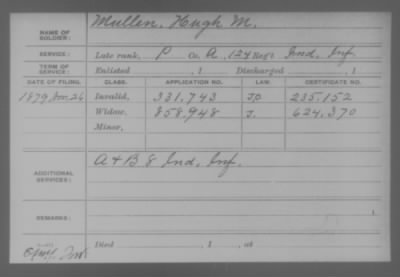 NAME OF SOLDIER: Mullen, Hugh M.
SERVICE: Late rank, P Co. A, 124 Reg't Ind. Inf.
TERM OF SERVICE: Enlisted , 1 Discharged , 1
DATE OF FILING. CLASS. APPLICATION NO. LAW. CERTIFICATE NO.
1879, Nov. 26 Invalid, 331,743 235,152
Widow, 858,948 J. 624,370
Minor,
ADDITIONAL SERVICES: A & B 8 Ind. Inf.
REMARKS:
Died , 1 , at